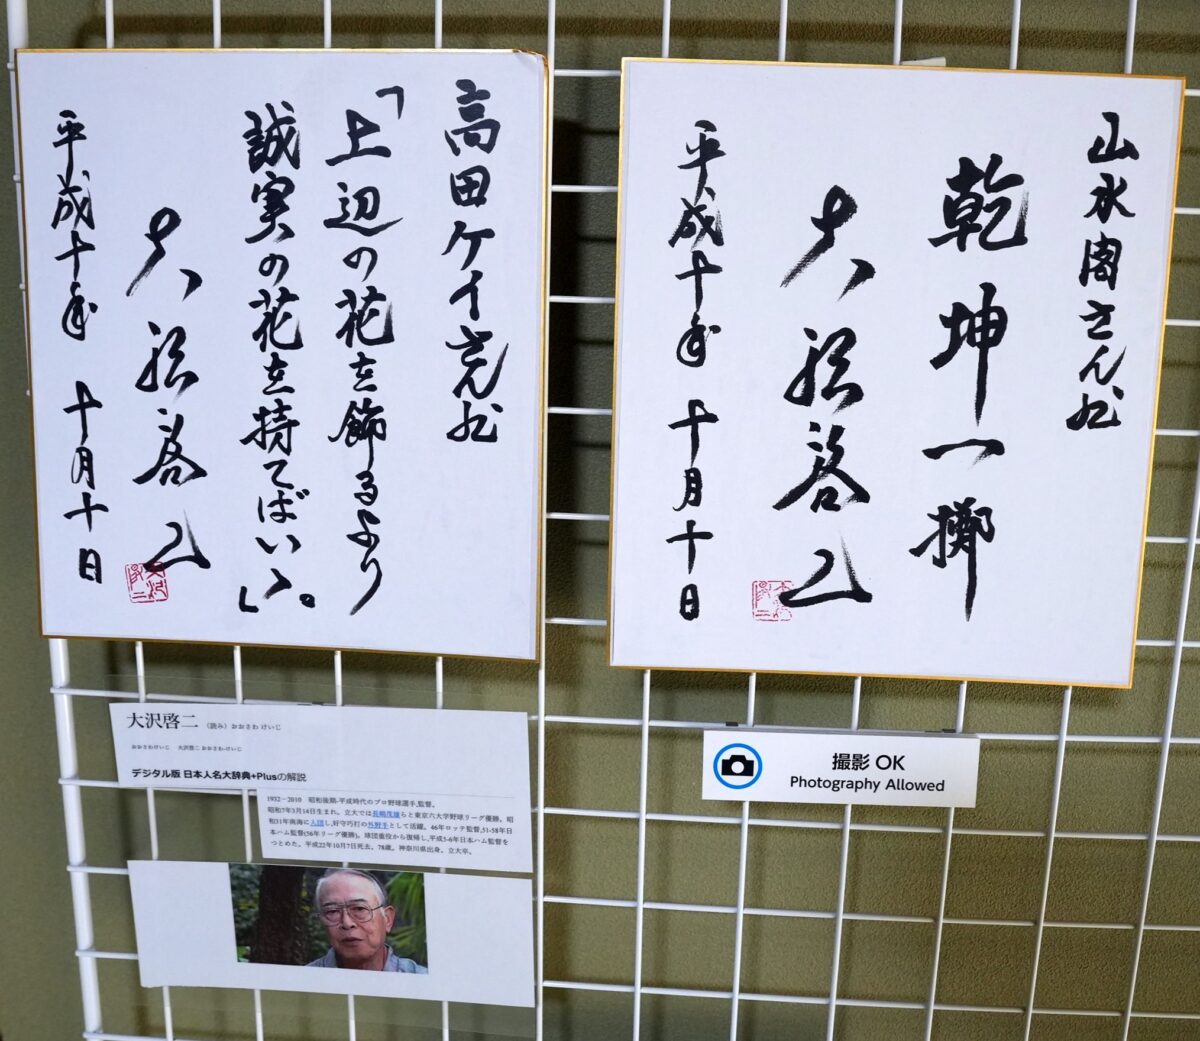 高田ケイさん江
「上辺の花を飾るより
誠実の花を持てばいい」。
大沢啓二
平成十年 十月十日
山水閣さん江
乾坤一擲
大沢啓二
平成十年 十月十日
大沢啓二 (読み)おおさわ けいじ
おおさわけいじ 大沢啓二 おおさわ-けいじ
デジタル版 日本人名大辞典+Plusの解説
1932－2010 昭和後期-平成時代のプロ野球選手,監督。
昭和7年3月14日生まれ。立大では長嶋茂雄らと東京六大学野球リーグ優勝。昭
和31年南海に入団し,好守巧打の外野手として活躍。46年ロッテ監督,51-58年日
本ハム監督(56年リーグ優勝)。球団重役から復帰し,平成5-6年日本ハム監督を
つとめた。平成22年10月7日死去。78歳。神奈川県出身。立大卒。
撮影 OK
Photography Allowed